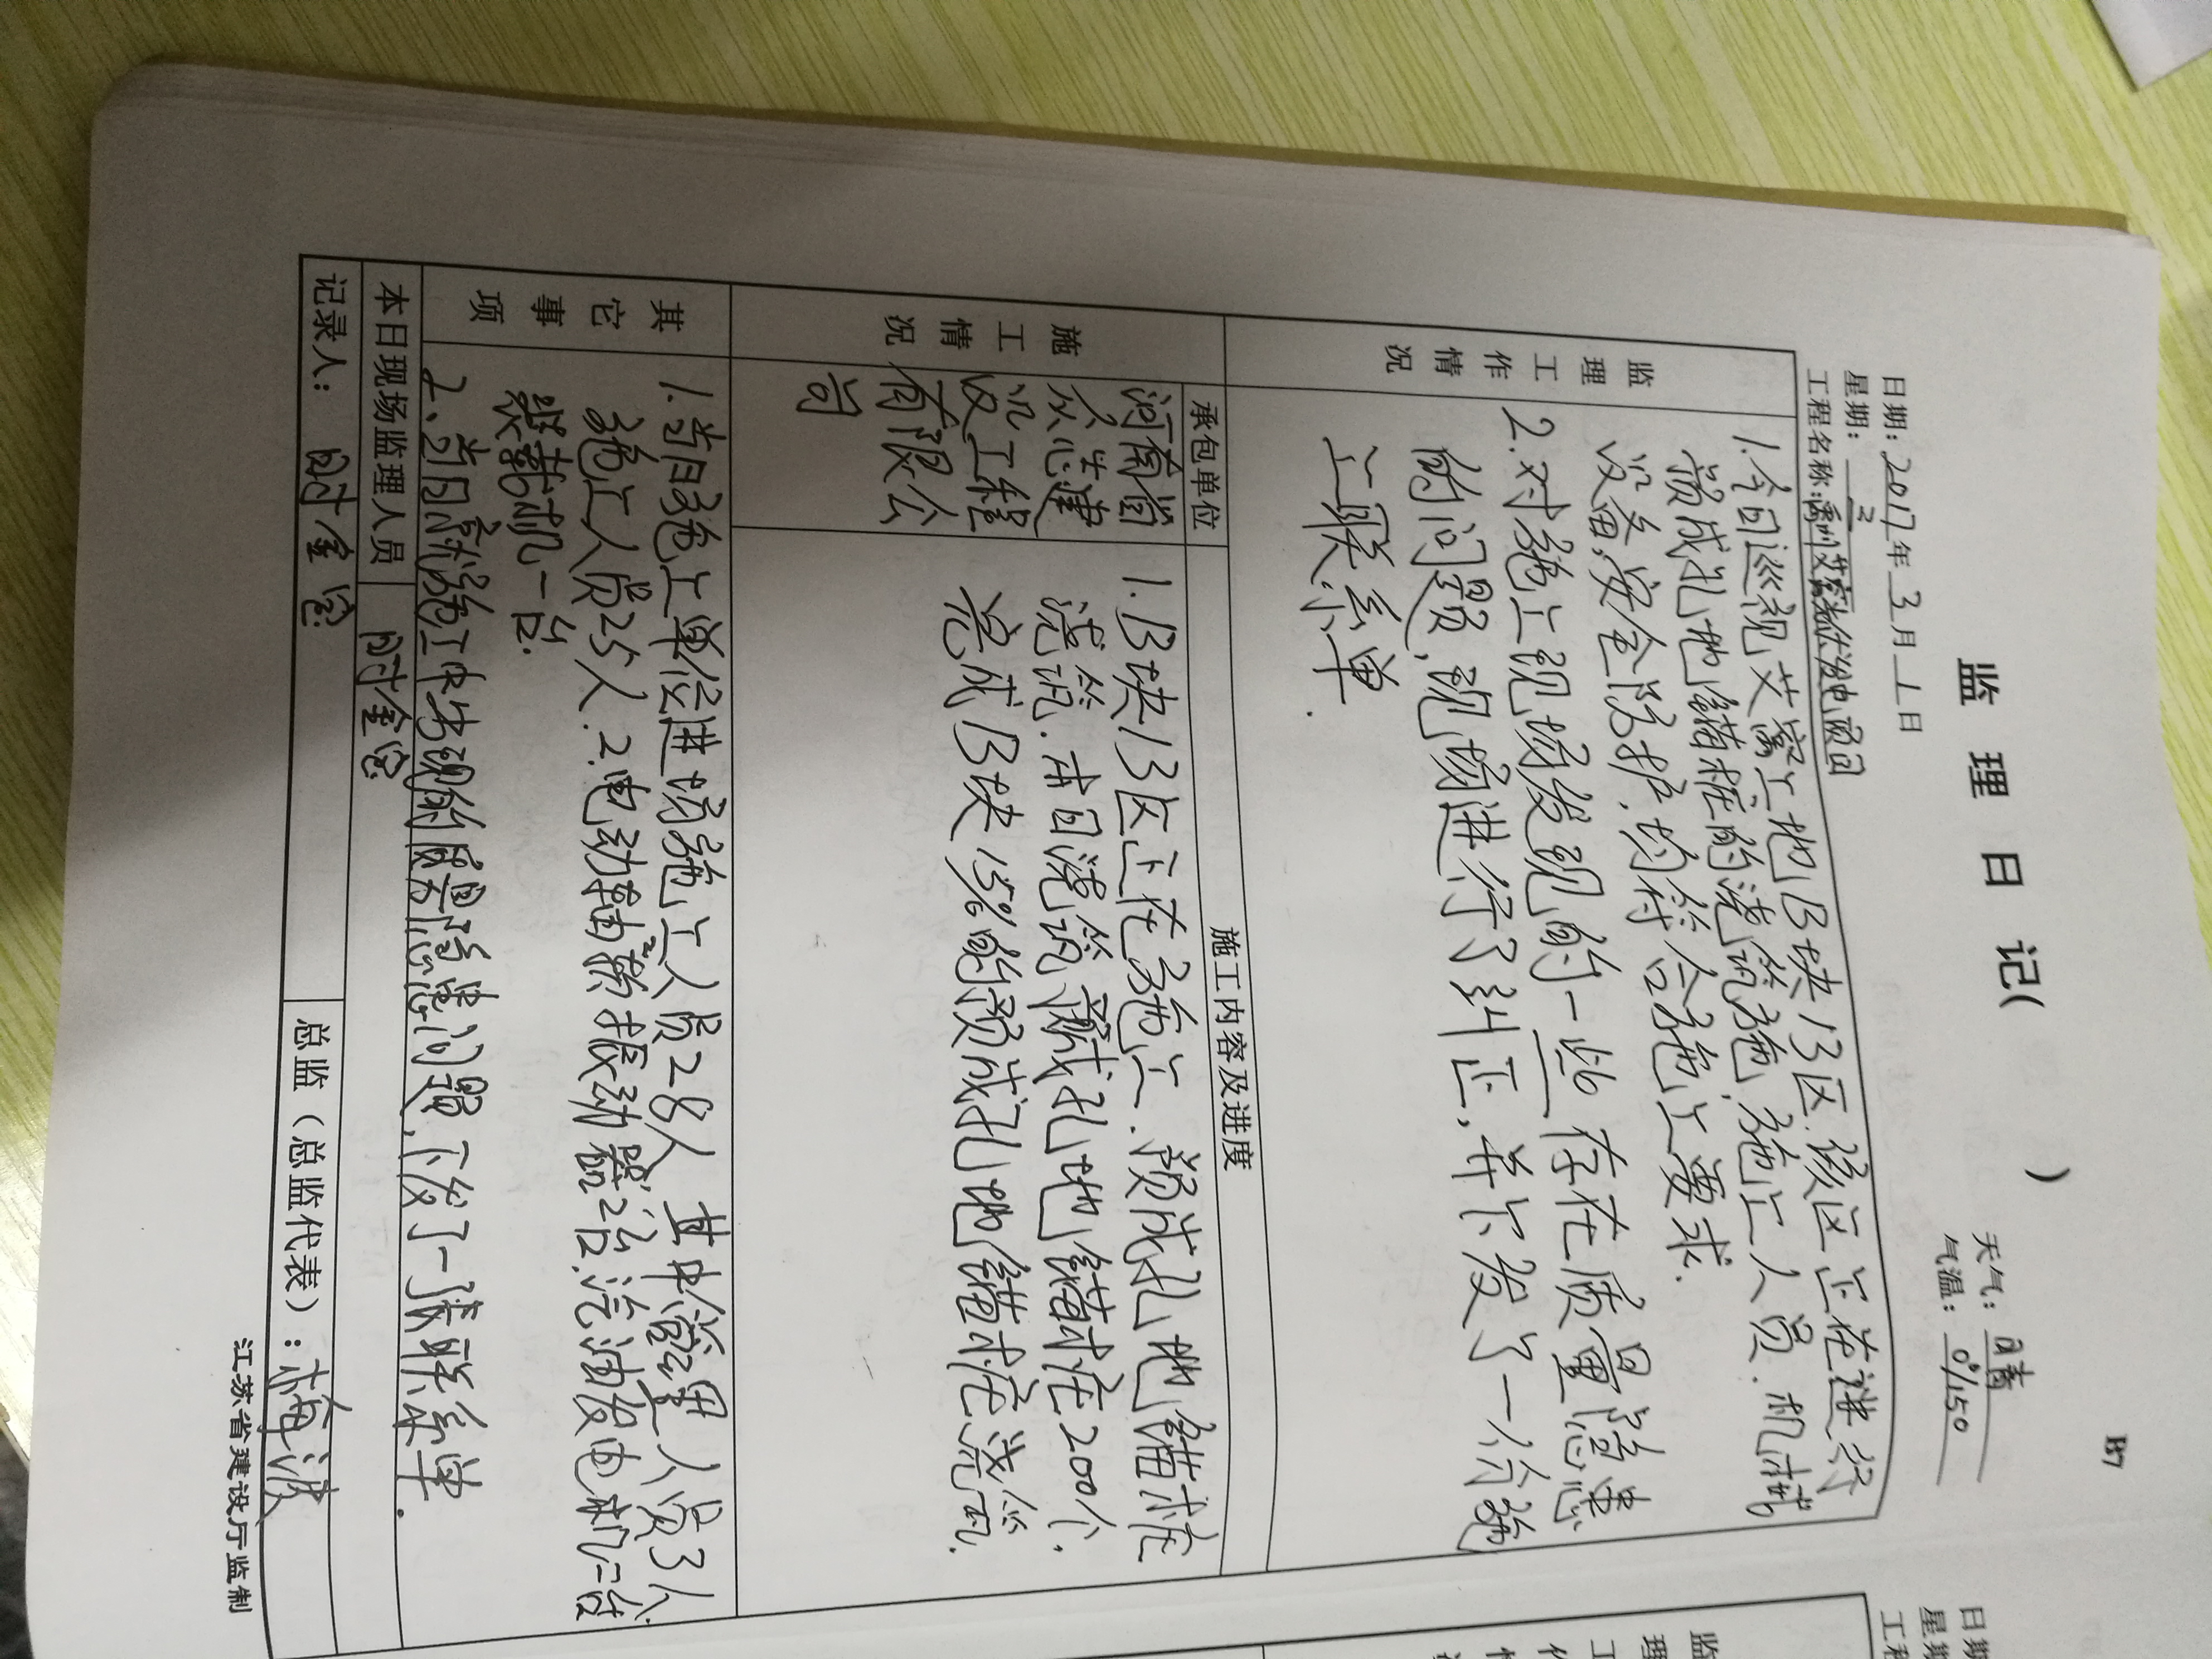 B7
监理日记( )
日期:2017年3月1日
天气:晴
星期:三
气温:0°/150
工程名称:禹州艾富光伏发电项目
监理工作情况
1.今日巡视艾富工地B块13区.该区正在进行
预成孔地锚桩的浇筑施,施工人员.机械
设备,安全防护.均符合施工要求.
2.对施工现场发现的一些存在质量隐患
的问题,现场进行了纠正,并下发了一份施
工联系单.
施工情况
承包单位
施工内容及进度
河南省
众志建
设工程
有限公
司
1.B块13区正在施工.预成孔地锚桩
浇筑.本日浇筑预成孔地锚桩200个.
完成B块15%的预成孔地锚桩浇筑.
其它事项
1.当日施工单位进场施工人员28人 其中管理人员3人
施工人员25人.2.电动轴 振动器2台.汽油发电机二台
装载机一台.
2、当日就施工中出现的质量隐患问题.下发了一张联系单.
本日现场监理人员
时金宝
记录人: 时金宝
总监(总监代表):梅波
江苏省建设厅监制
日期
星期
工程
监
理
工
作
情